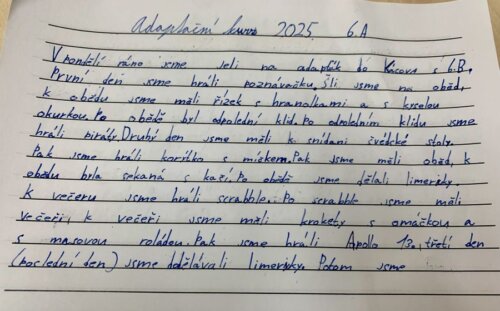 Adaptační kurs 2025 6.A
V pondělí ráno jsme jeli na adapťák do Kácova s 6.B.
První den jsme hráli poznávačku. Šli jsme na oběd,
k obědu jsme měli řízek s hranolkami a s kyselou
okurkou. Po obědě byl odpolední klid. Po odpoledním klidu jsme
hráli piráty. Druhý den jsme měli k snídani švédské stoly.
Pak jsme hráli korítko s míčkem. Pak jsme měli oběd, k
obědu byla sekaná s kaší. Po obědě jsme dělali limeriky.
K večeru jsme hráli scrabble. Po scrabble jsme měli
večeři, k večeři jsme měli krokety s omáčkou a
s masovou roládou. Pak jsme hráli Apollo 13. třetí den
(poslední den) jsme dodělávali limeriky. Potom jsme